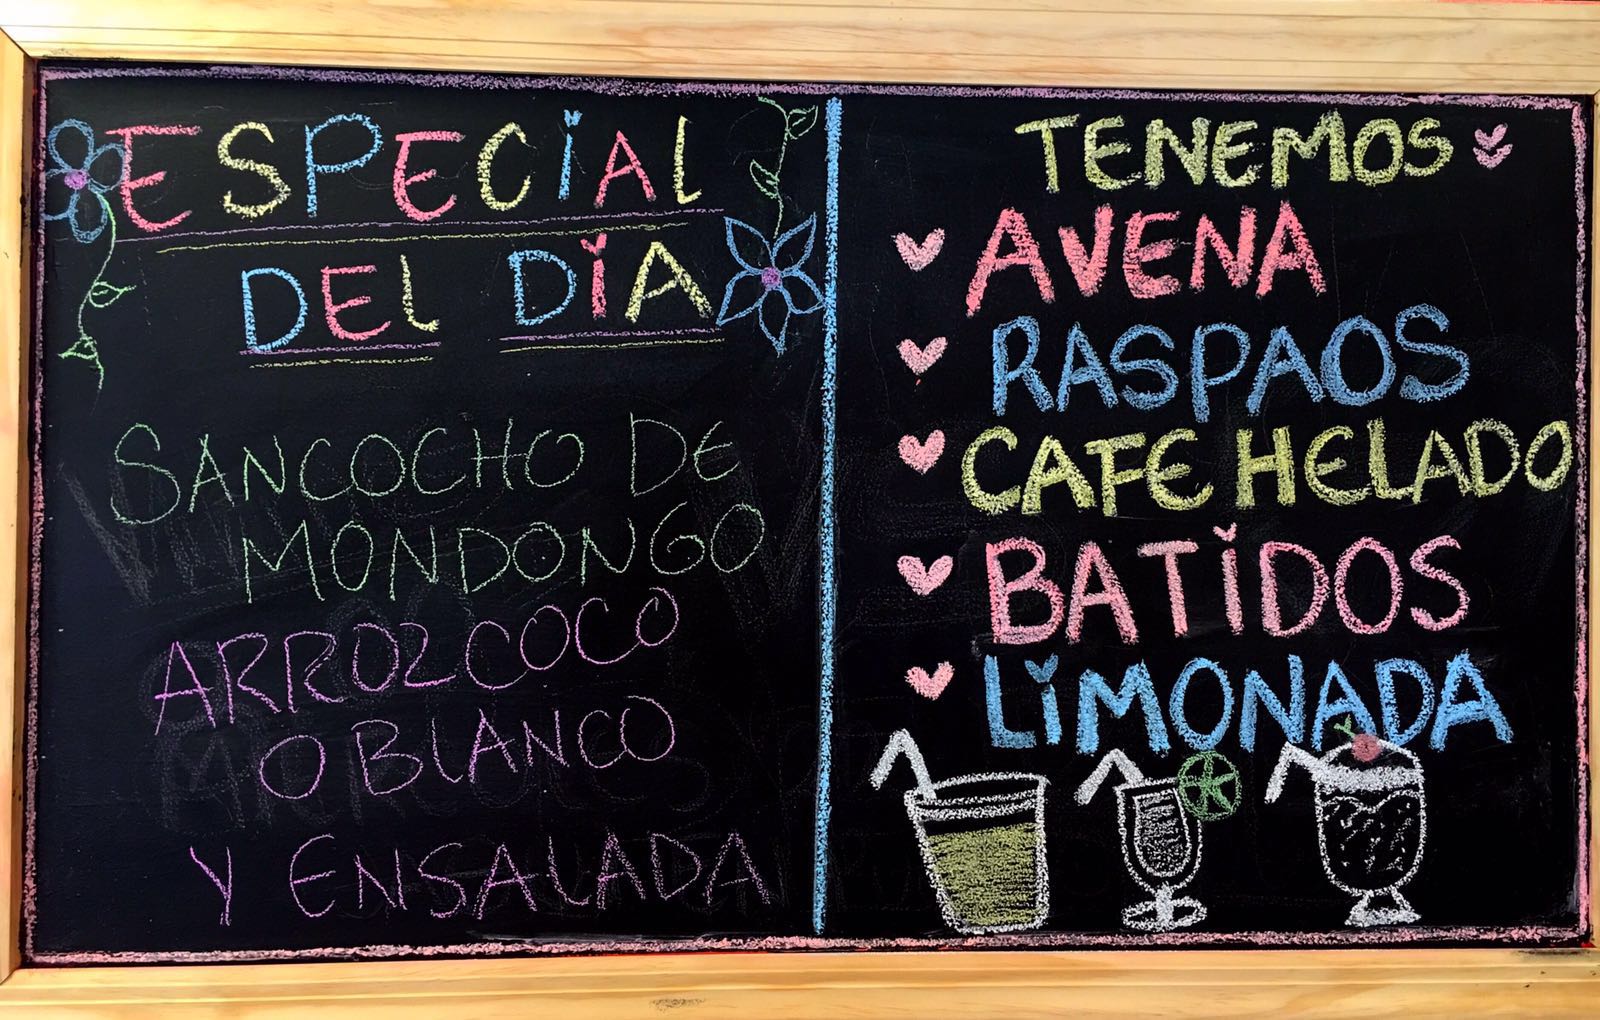 ESPECiAL
DEL DiA
SANCOCHO DE
MONDONGO
ARROZ COCO
O BLANCO
Y ENSALADA
TENEMOS
AVENA
RASPAOS
CAFE HELADO
BATiDOS
LiMONADA